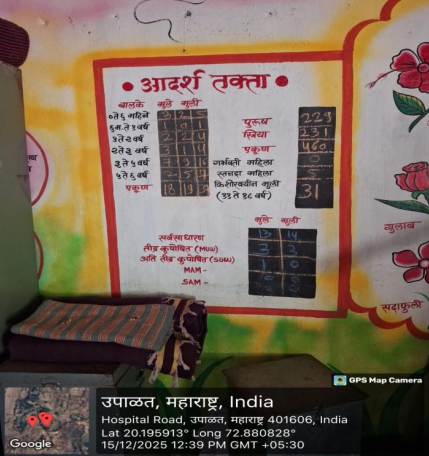 • आदर्श तक्ता •
बालके मुले मुली
० ते ६ महिने 3 2 5
६ म. ते १ वर्ष 1 0
१ ते २ वर्ष
२ ते ३ वर्ष
३ ते ५ वर्ष
५ ते ६ वर्ष
एकूण 18 19
पुरूष 229
स्त्रिया 231
एकूण 460
गर्भवती महिला 0
स्तनदा महिला 5
किशोरवयीन मुली 31
(११ ते १८ वर्ष)
मुले मुली
सर्वसाधारण 13 14
तीव्र कुपोषित (MUW)
अति तीव्र कुपोषित (SUW)
MAM -
SAM -
गुलाब
सदाफुली
GPS Map Camera
Google
उपाळत, महाराष्ट्र, India
Hospital Road, उपाळत, महाराष्ट्र 401606, India
Lat 20.195913° Long 72.880828°
15/12/2025 12:39 PM GMT +05:30